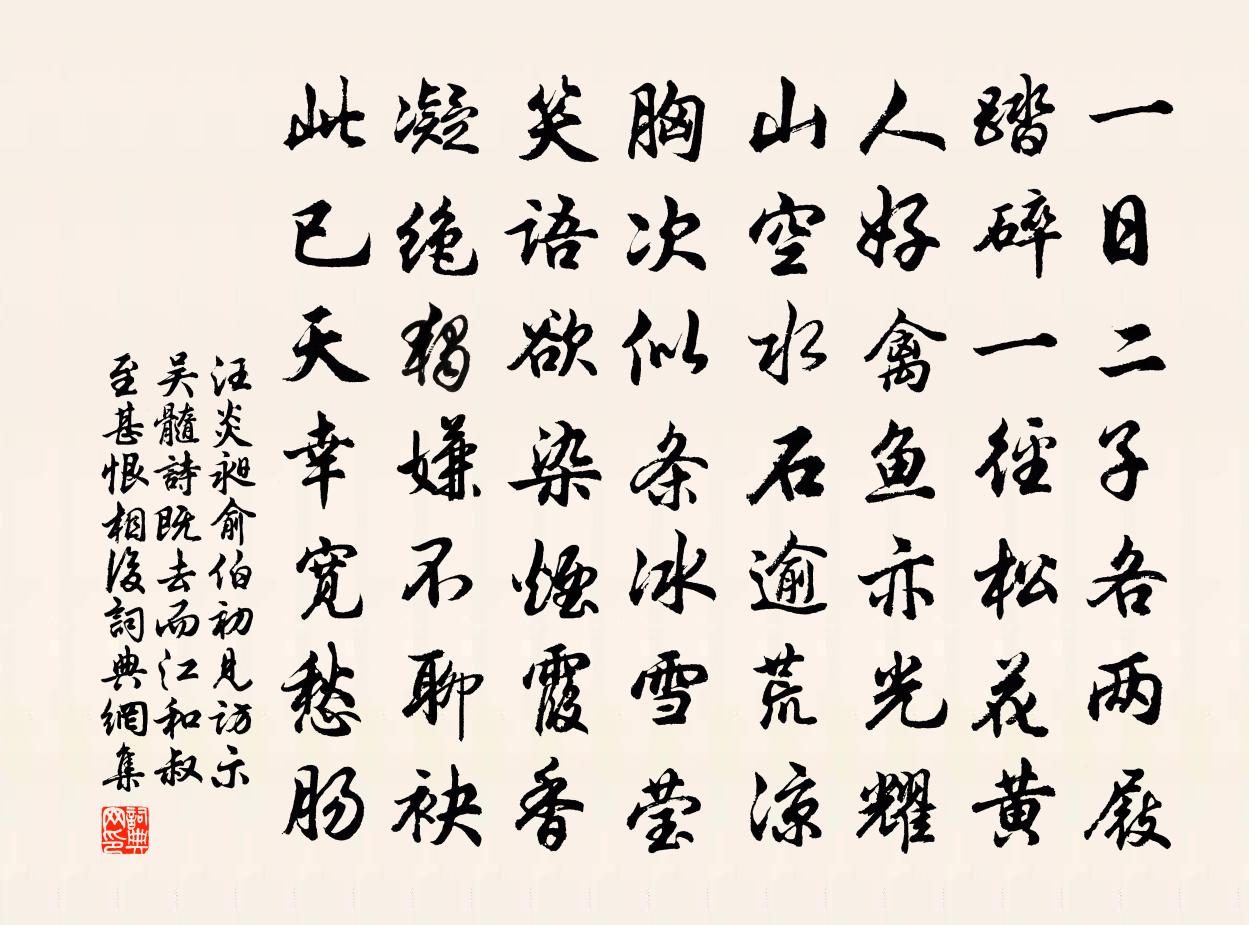 一日二子各两屐
踏碎一径松花黄
人好禽鱼亦光耀
山空水石逾荒凉
胸次似条冰雪莹
笑语欲染烟霞香
凝绝独嫌不聊袂
此已天幸宽愁肠
汪炎昶俞伯初见访示
吴髓詩既去而江和叔
至甚恨相後詞典網集
詞典网印